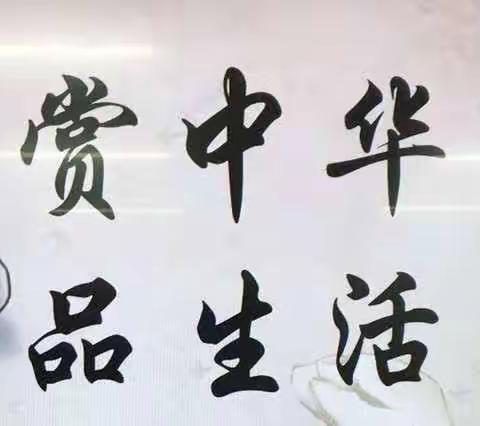 赏中华
品生活